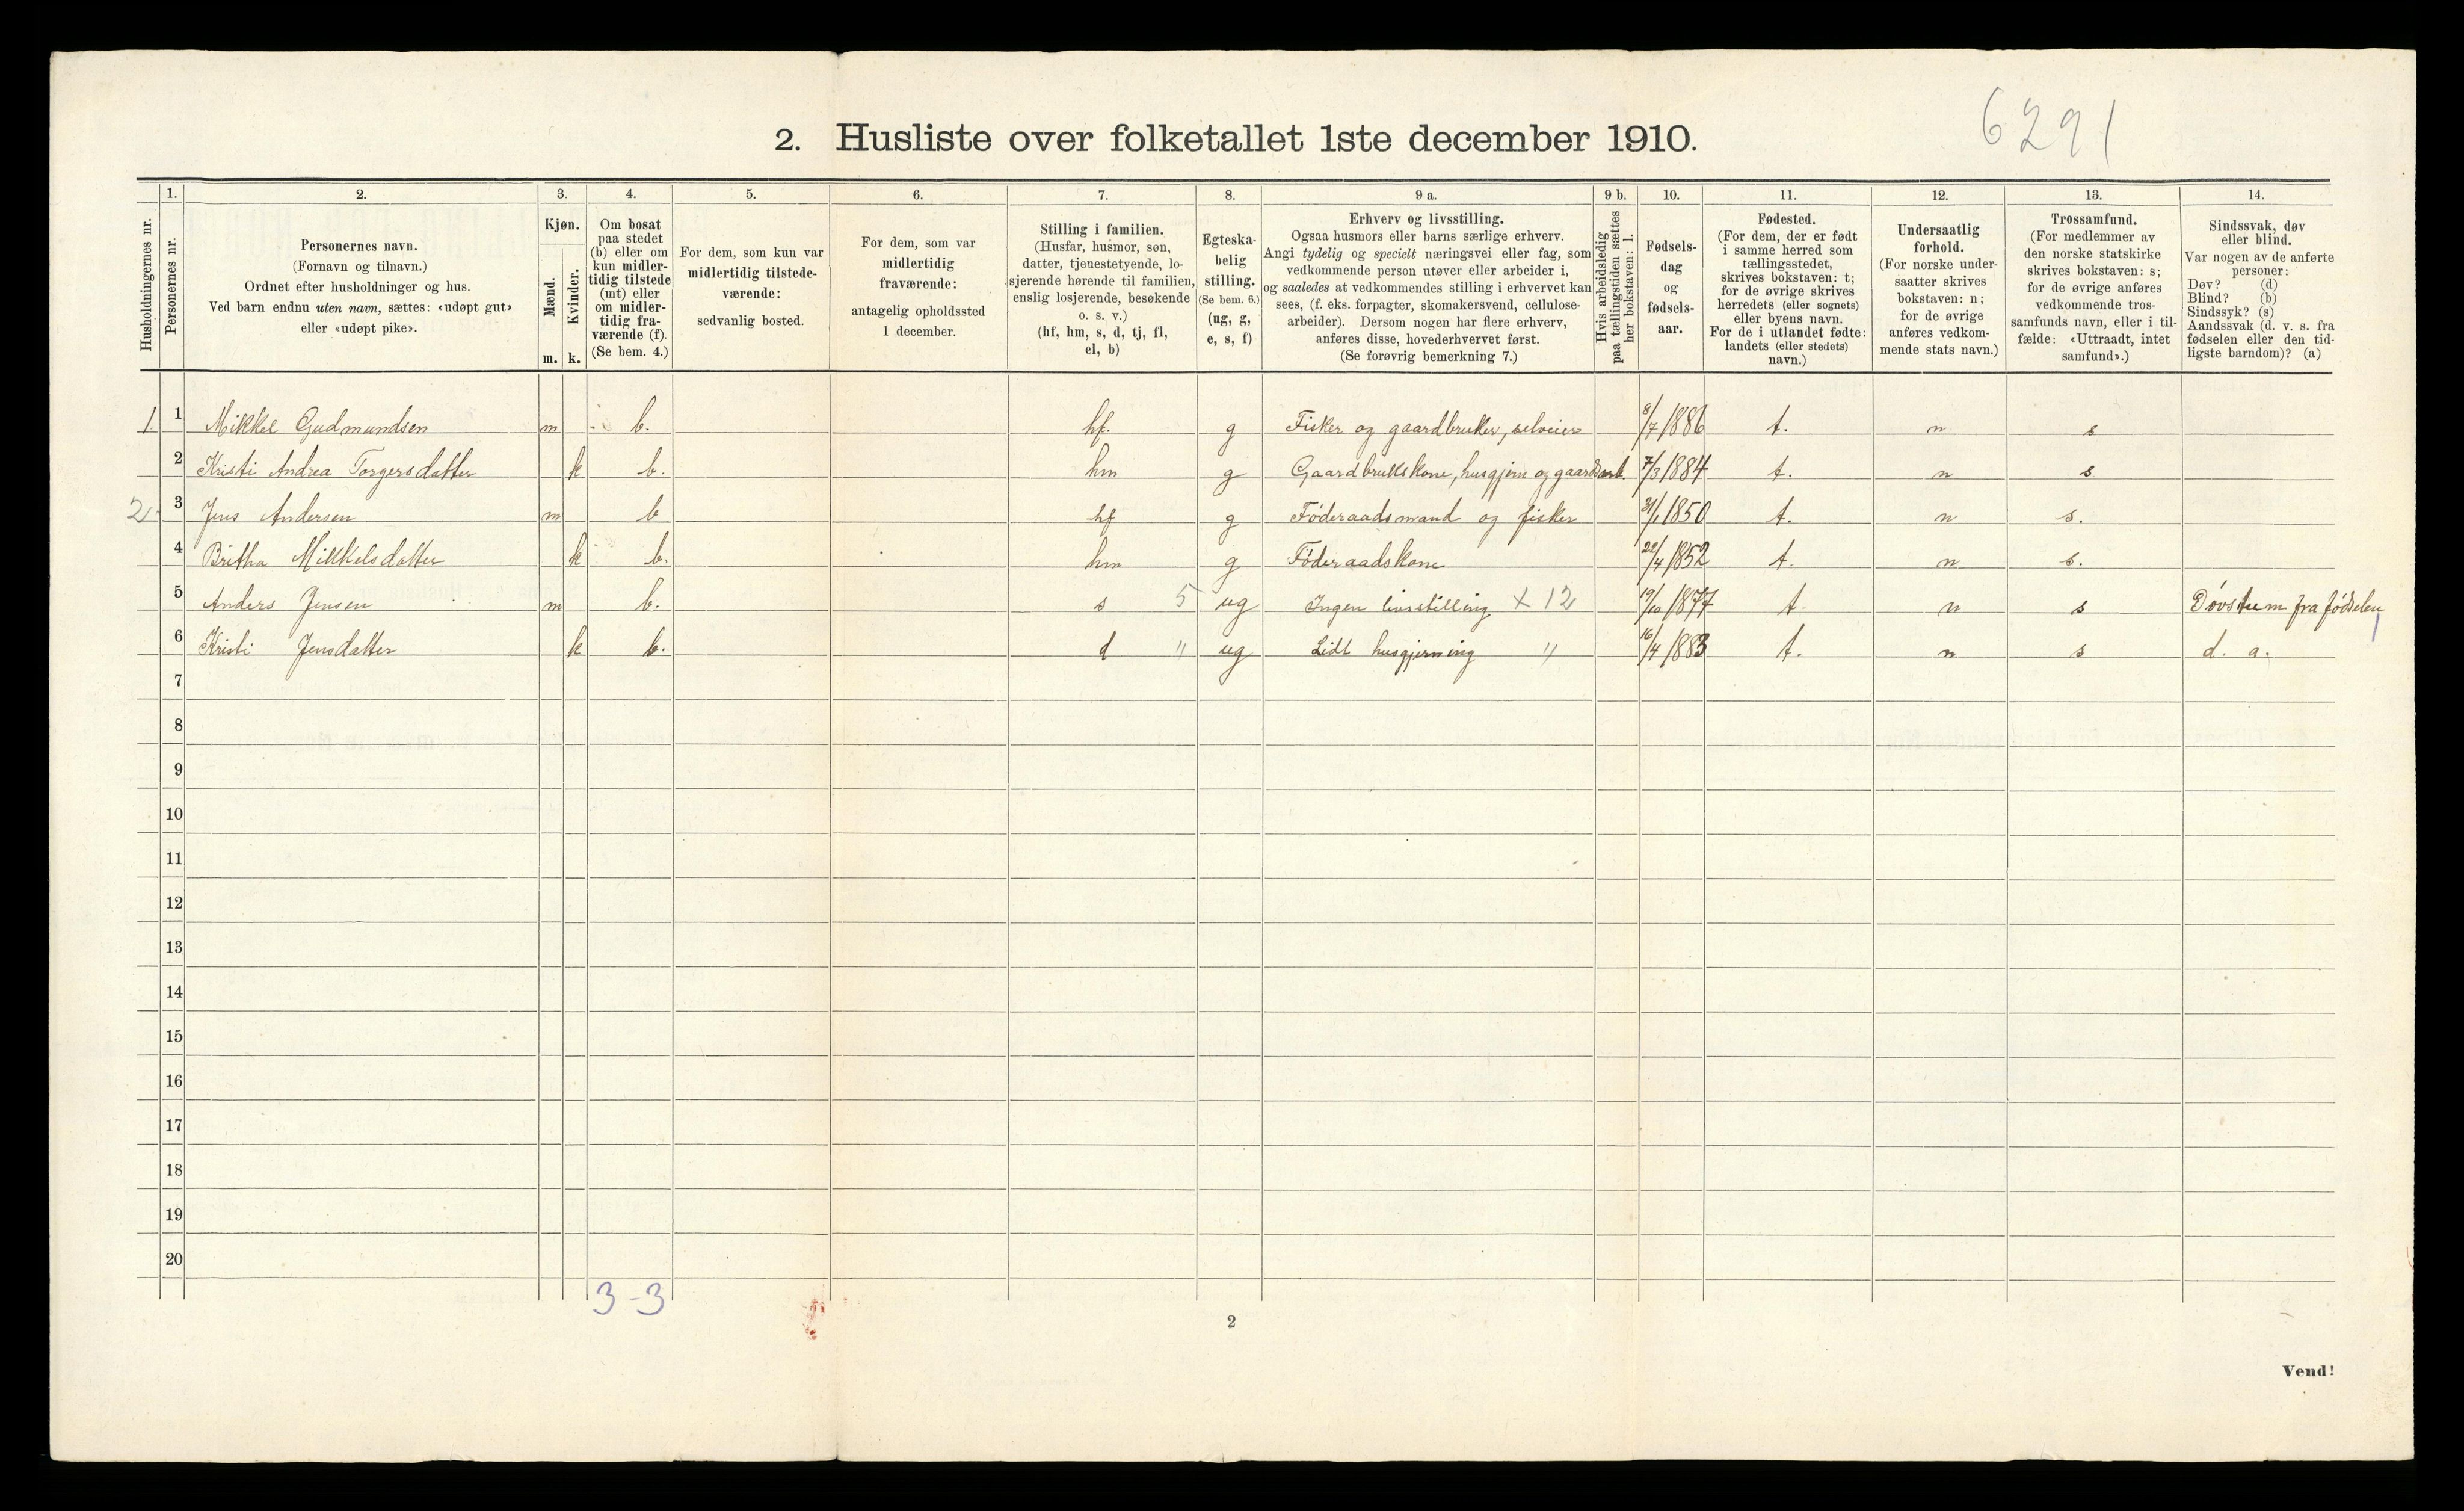 6291
2. Husliste over folketallet 1ste december 1910.
Husholdningernes nr.
1.
Personernes nr.
2.
Personernes navn.
(Fornavn og tilnavn.)
Ordnet efter husholdninger og hus.
Ved barn endnu uten navn, sættes: «udøpt gut»
eller «udøpt pike».
3.
Kjøn.
Mænd.
m.
Kvinder.
k.
4.
Om bosat
paa stedet
(b) eller om
kun midler-
tidig tilstede
(mt) eller
om midler-
tidig fra-
værende (f).
(Se bem. 4.)
5.
For dem, som kun var
midlertidig tilstede-
værende:
sedvanlig bosted.
6.
For dem, som var
midlertidig
fraværende:
antagelig opholdssted
1 december.
7.
Stilling i familien.
(Husfar, husmor, søn,
datter, tjenestetyende, lo-
sjerende hørende til familien,
enslig losjerende, besøkende
o. s. v.)
(hf, hm, s, d, tj, fl,
el, b)
8.
Egteska-
belig
stilling.
(Se bem. 6.)
(ug, g,
e, s, f)
9 a.
Erhverv og livsstilling.
Ogsaa husmors eller barns særlige erhverv.
Angi tydelig og specielt næringsvei eller fag, som
vedkommende person utøver eller arbeider i,
og saaledes at vedkommendes stilling i erhvervet kan
sees, (f. eks. forpagter, skomakersvend, cellulose-
arbeider). Dersom nogen har flere erhverv,
anføres disse, hovederhvervet først.
(Se forøvrig bemerkning 7.)
9 b.
Hvis arbeidsledig
paa tællingstiden sættes
her bokstaven: l.
10.
Fødsels-
dag
og
fødsels-
aar.
11.
Fødested.
(For dem, der er født
i samme herred som
tællingsstedet,
skrives bokstaven: t;
for de øvrige skrives
herredets (eller sognets)
eller byens navn.
For de i utlandet fødte:
landets (eller stedets)
navn.)
12.
Undersaatlig
forhold.
(For norske under-
saatter skrives
bokstaven: n;
for de øvrige
anføres vedkom-
mende stats navn.)
13.
Trossamfund.
(For medlemmer av
den norske statskirke
skrives bokstaven: s;
for de øvrige anføres
vedkommende tros-
samfunds navn, eller i til-
fælde: «Uttraadt, intet
samfund».)
14.
Sindssvak, døv
eller blind.
Var nogen av de anførte
personer:
Døv? (d)
Blind? (b)
Sindssyk? (s)
Aandssvak (d. v. s. fra
fødselen eller den tid-
ligste barndom)? (a)
1. 1 Mikkel Gudmundsen m b. hf. g Fisker og gaardbruker, selveier 8/7 1886 t. n s
2 Kristi Andrea Torgersdatter k b. hm g Gaardbrukskone, husgjern og gaardsarb. 7/3 1884 t. n s
2. 3 Jens Andersen m b hf g Føderaadsmand og fisker 31/1 1850 t. n s.
4 Britha Mikkelsdatter k b. hm g Føderaadskone 22/4 1852 t. n s.
5 Anders Jensen m b. s 5 ug Ingen livsstilling x 12 19/10 1877 t n s Døvstum fra fødselen
6 Kristi Jensdatter k b. d " ug Lidt husgjerning " 16/4 1883 t. n s d. a.
7
8
9
10
11
12
13
14
15
16
17
18
19
20
3-3
2
Vend!